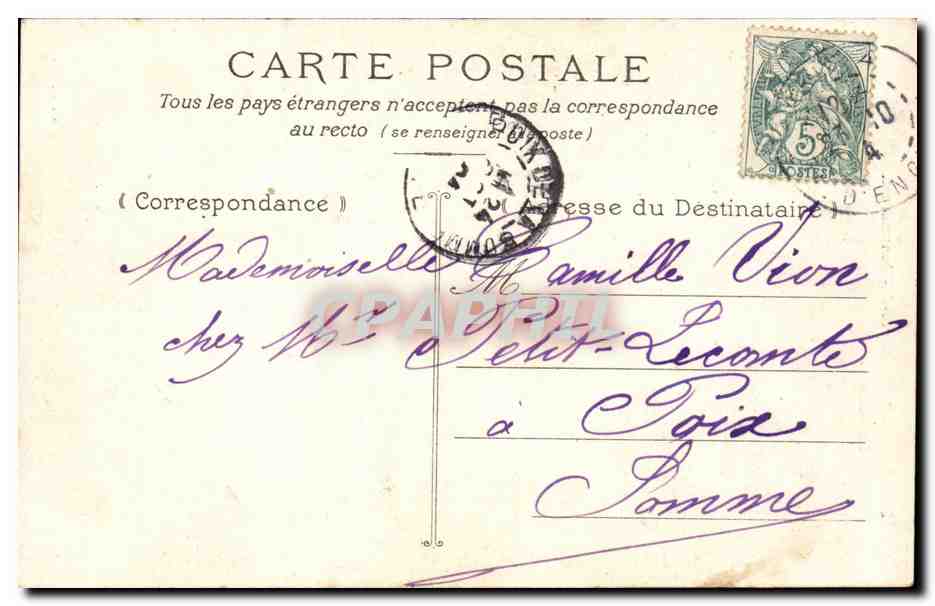 CARTE POSTALE
Tous les pays étrangers n'acceptent pas la correspondance
au recto (se renseigner poste)
5c
POSTES
POIX DE LA SOMME
24
10
4
D'ENG
(Correspondance)
Adresse du Destinataire)
Mademoiselle Camille Vion
M
CPAPHIL
chez Mr Petit-Lecomte
à Poix
Somme